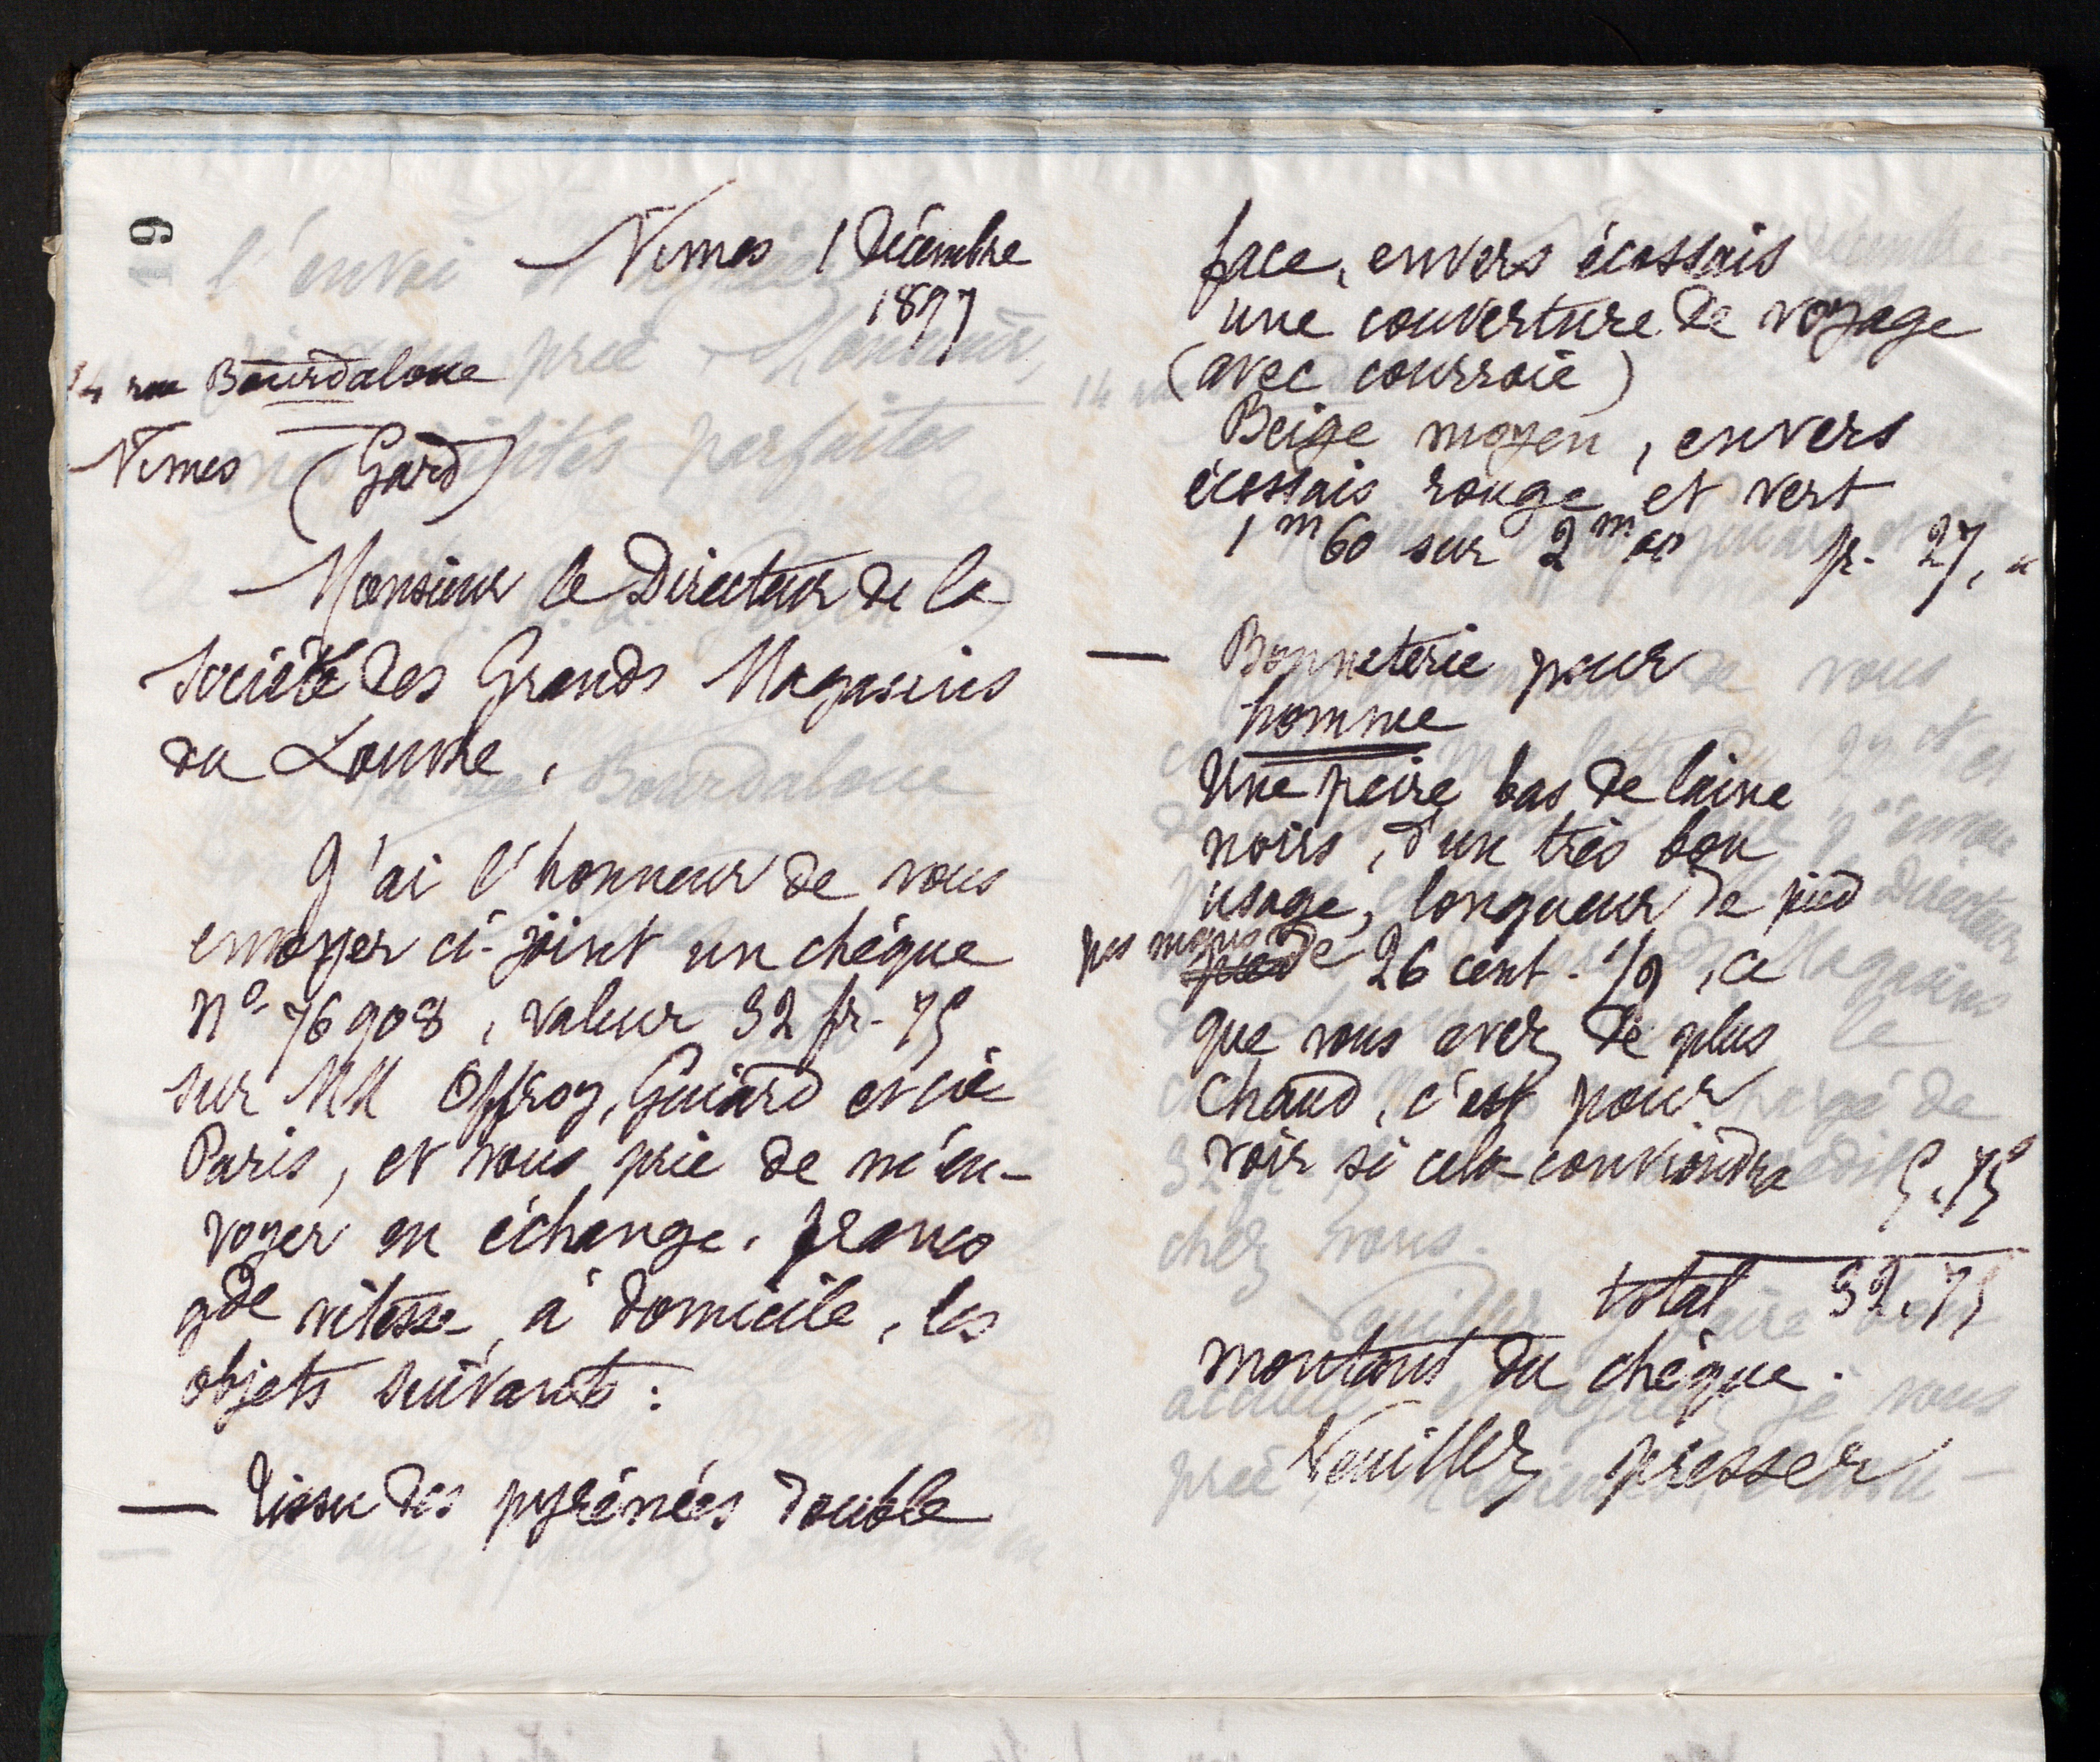 19
Nîmes 1 Décembre
1897
14 rue Bourdaloue
Nîmes (Gard)
Monsieur le Directeur de la
Société des Grands Magasins
du Louvre,
J'ai l'honneur de vous
envoyer ci-joint un chèque
n° 76908, valeur 32 fr. 75
sur MM Offroy, Guiard et Cie
Paris, et vous prie de m'en-
voyer en échange, franco
gde vitesse, à domicile, les
objets suivants :
— Tissu des pyrénées double
face, envers écossais
une couverture de voyage
(avec courroie)
Beige moyen, envers
écossais rouge et vert
1m60 sur 2m00 fr. 27, "
— Bonneterie pour
homme
Une paire bas de laine
noirs, d'un très bon
usage, longueur de pied
pas moins de 26 cent. 1/2, ce
que vous avez de plus
chaud, c'est pour
voir si cela conviendra 5.75
total 32.75
montant du chèque.
Veuillez presser